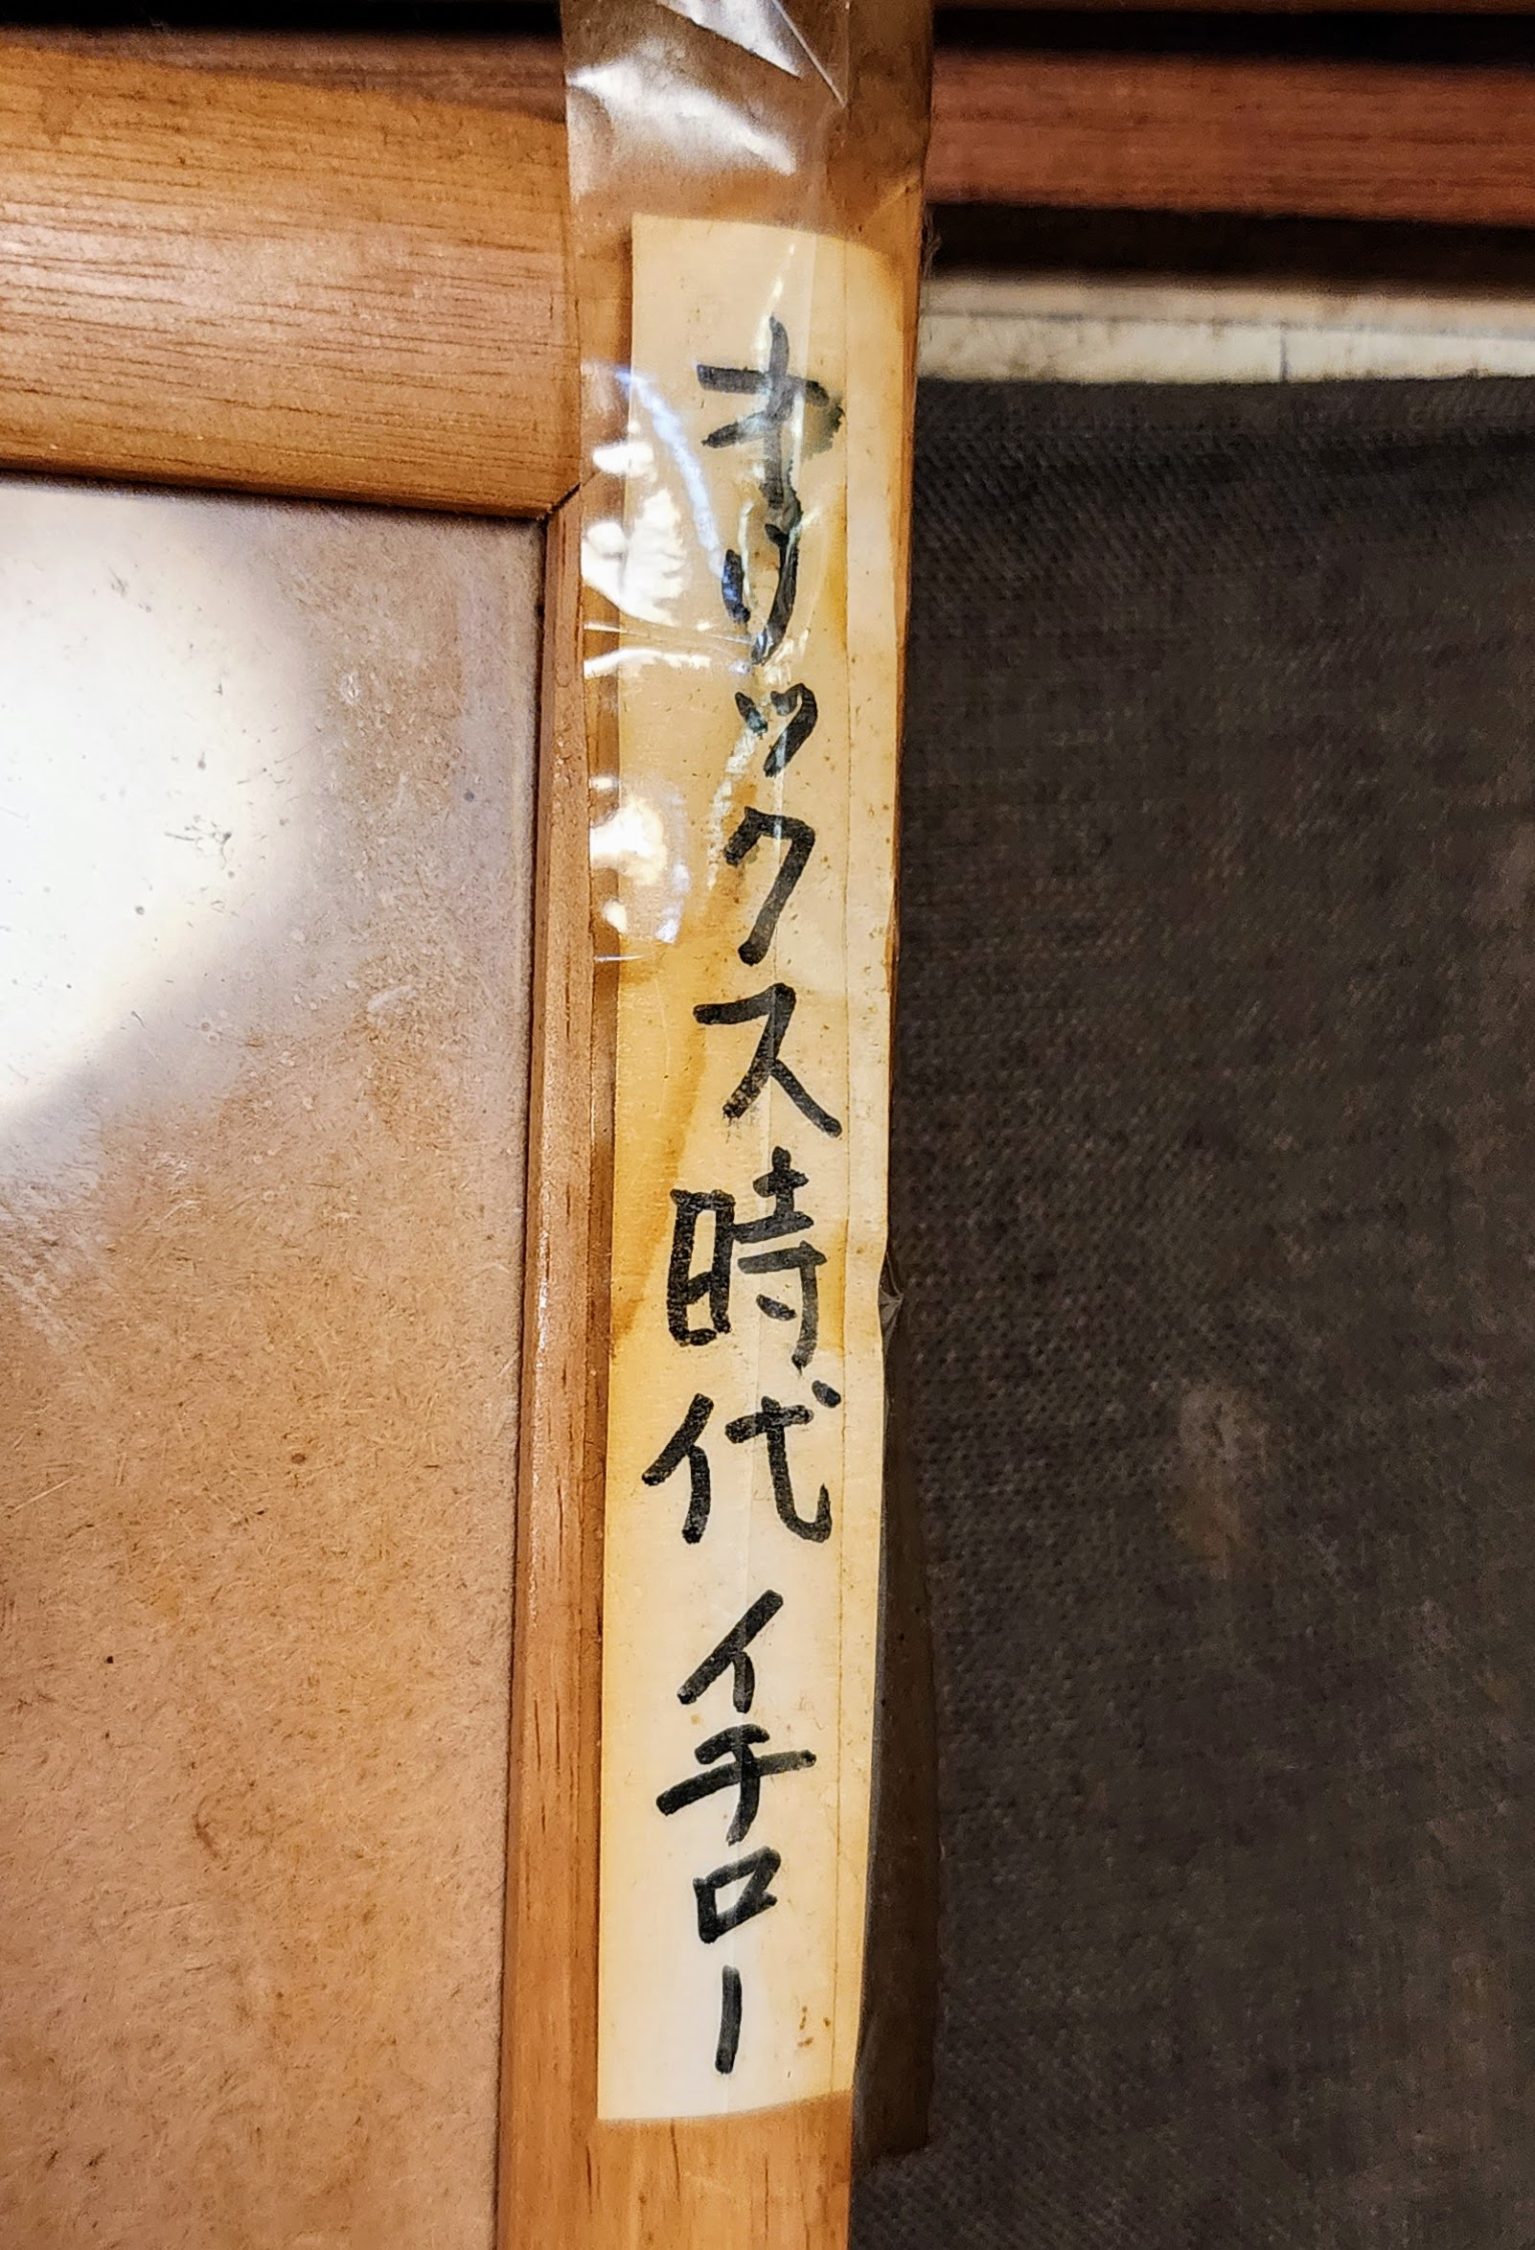 オリックス時代 イチロー